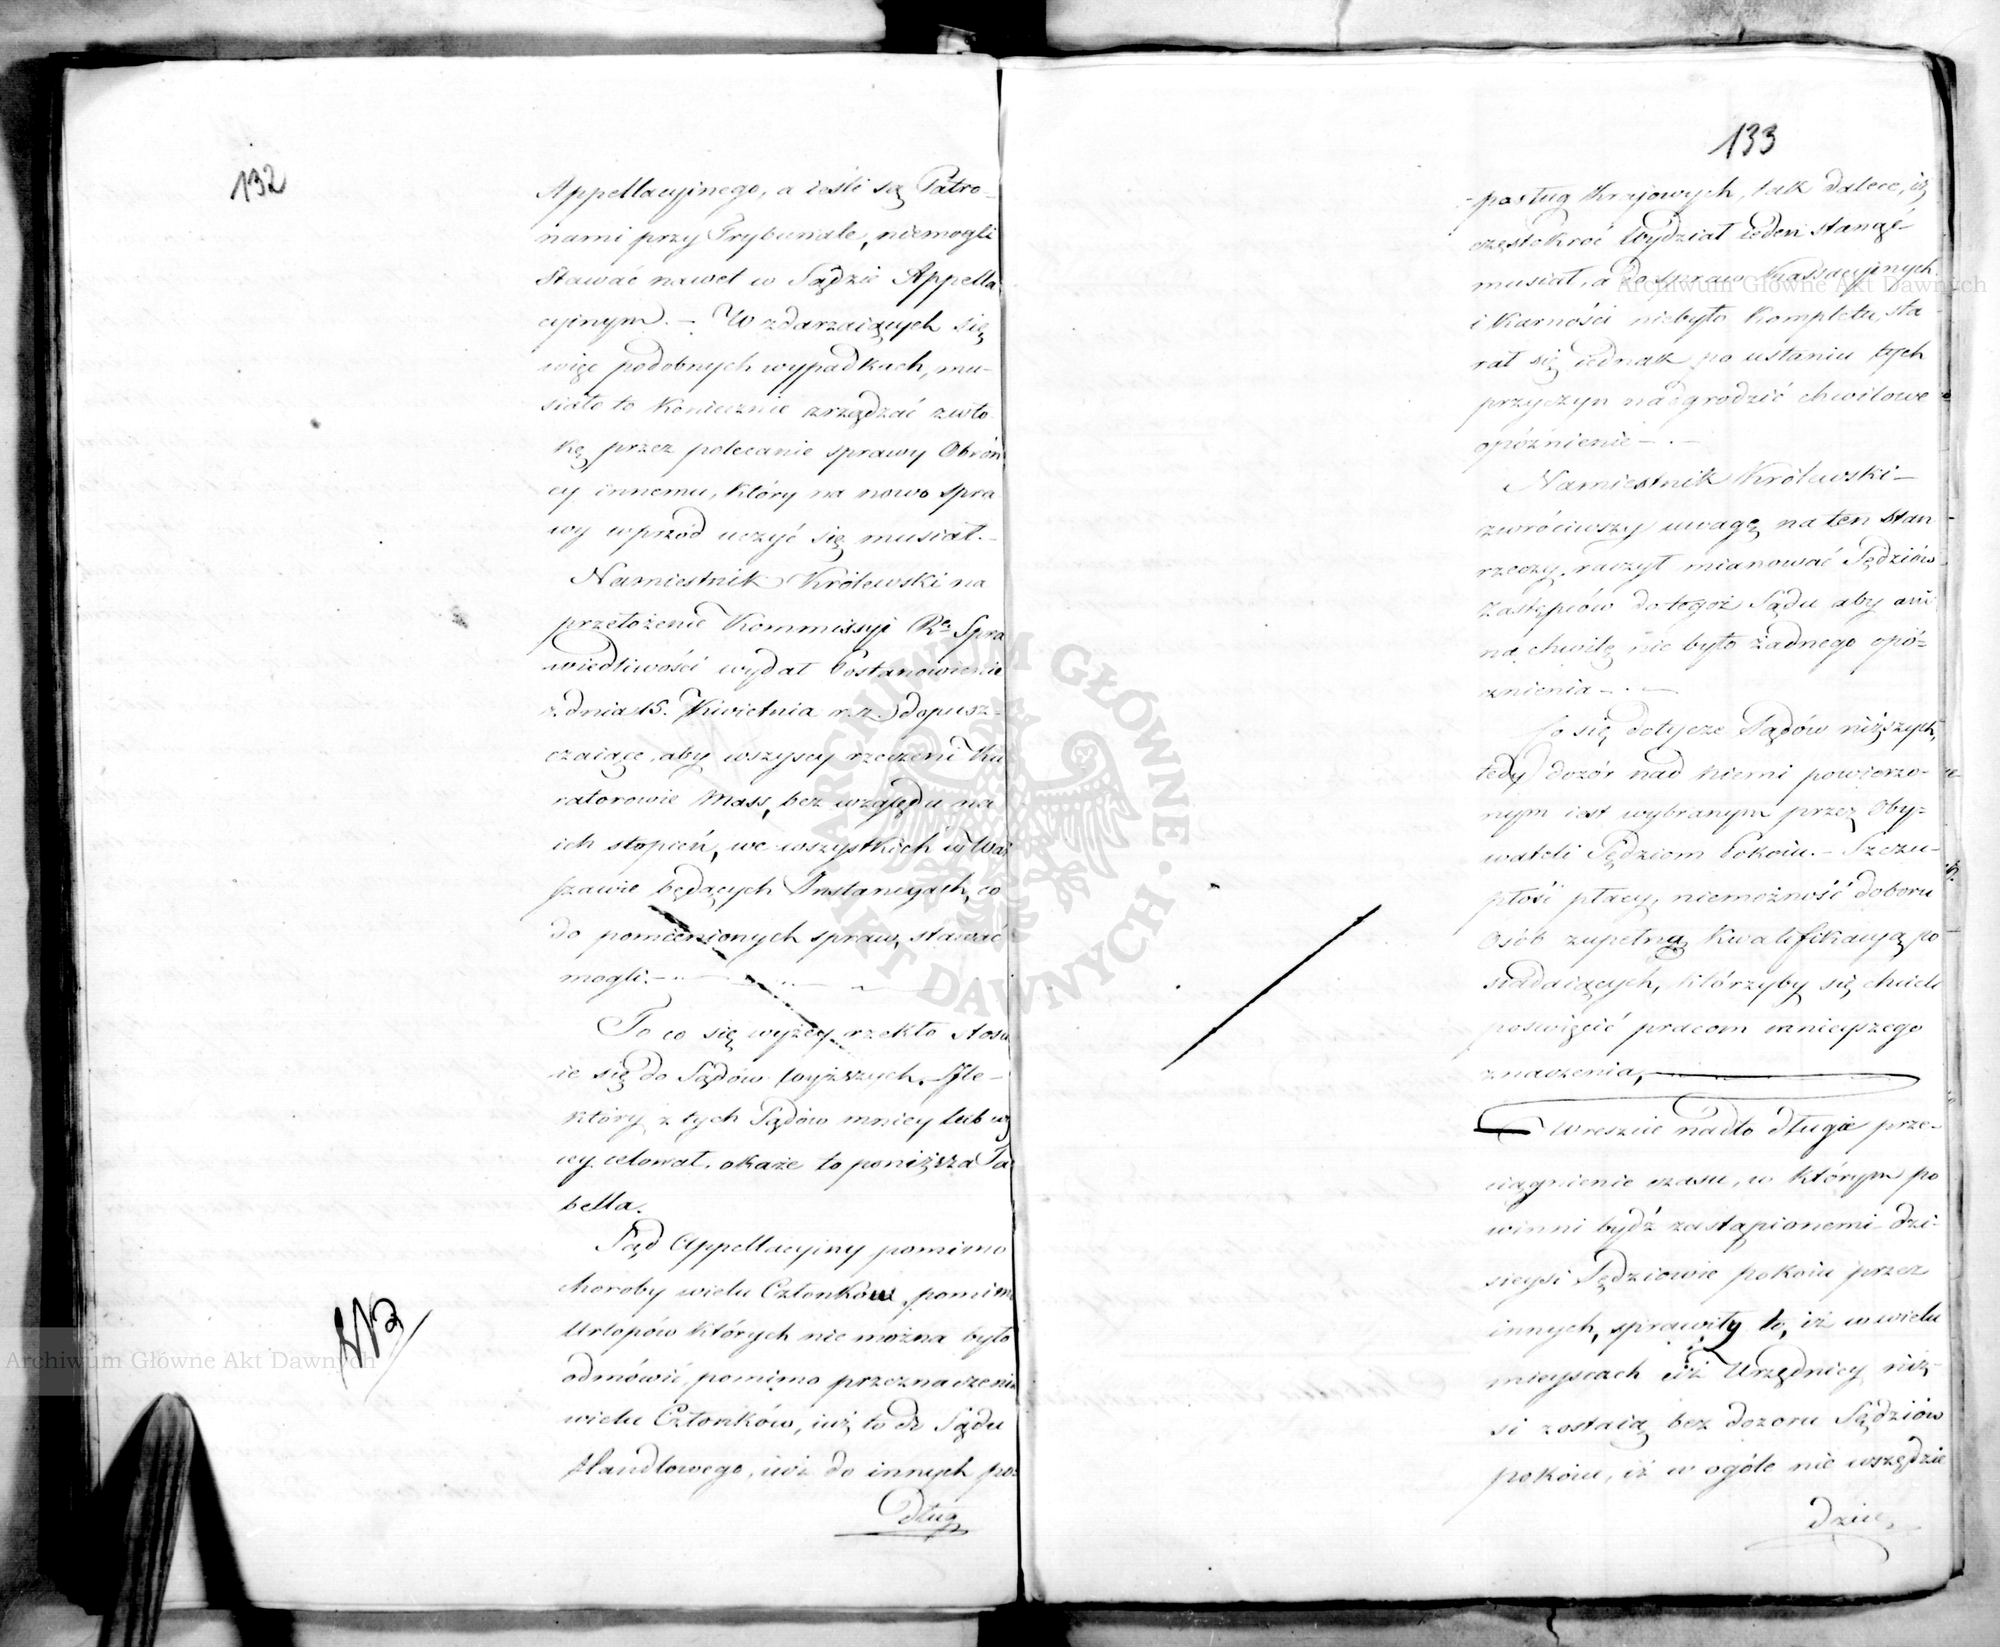 132
Appellacyinego, a ieśli są Patro-
nami przy Trybunale, niemogli
stawać nawet w Sądzie Appella
cyinym. – W zdarzaiących się
więc podobnych wypadkach, mu-
siało to koniecznie zrządzać zwło
kę, przez polecanie sprawy Obroń
cy innemu, który na nowo spra
wy wprzód uczyć się musiał. –
Namiestnik Królewski na
przełożenie Kommissyi Rz. Spra
wiedliwości wydał Postanowienie
z dnia 15. Kwietnia r. z. dopusz-
czaiące, aby wszyscy rzeczeni Ku
ratorowie Mass, bez względu na
ich stopień, we wszystkich w War
szawie będących Instancyach, co
do pomienionych spraw, stawać
mogli. –
To co się wyżey rzekło stosu
ie się do Sądów wyższych. Ile
który z tych Sądów mniey lub wię
cey celował, okaże to poniższa Ta
bella.
Sąd Appellacyiny pomimo
choroby wielu Członków, pomimo
Urlopów których nie można było
odmówić, pomimo przeznaczenia
wielu Członków, iuż to do Sądu
Handlowego, iuż do innych po-
sług
NB
133
-posług Kraiowych, tak dalece, iż
częstokroć Wydział ieden stanąć
musiał, a do spraw Kassacyinych
i Karności niebyło Kompletu, sta
rał się iednak po ustaniu tych
przyczyn nadgrodzić chwilowe
opóźnienie – . –
Namiestnik Królewski –
zwróciwszy uwagę na ten stan
rzeczy, raczył mianować Sędziów
Zastępców do tegoż Sądu aby ani
na chwilę nie było żadnego opó-
znienia – . –
Co się dotycze Sądów niższych,
tedy dozór nad niemi powierzo-
nym iest wybranym przez Oby-
wateli Sędziom Pokoiu. – Szczu-
płość płacy, niemożność doboru
Osób zupełną Kwalifikacyą po
siadaiących, którzyby się chcieli
poswięcić pracom mnieyszego
znaczenia,
Wreszcie nadto długie prze-
ciągnienie czasu, w którym po
winni bydź zastąpionemi dzi-
sieysi Sędziowie pokoiu przez
innych, sprawiły to, iż w wielu
mieyscach iuż Urzędnicy niż-
si zostaią bez dozoru Sędziów
pokoiu, iż w ogóle nie wszędzie
Archiwum Główne Akt Dawnych
Archiwum Główne Akt Dawnych
ARCHIWUM GŁÓWNE AKT DAWNYCH